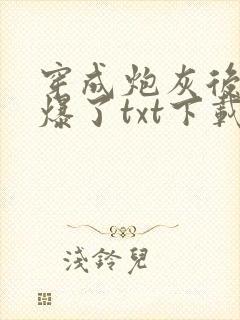 穿成炮灰後
爆了txt下載
淺鈴兒